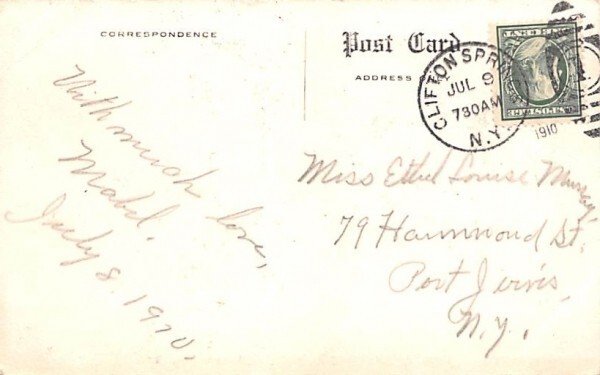 CORRESPONDENCE
Post Card
ADDRESS
CLIFTON SPRINGS
JUL 9
730AM
N.Y.
1910
With much love,
Mabel.
July 8, 1910.
Miss Ethel Louise Murray,
79 Hammond St,
Port Jervis,
N.Y.